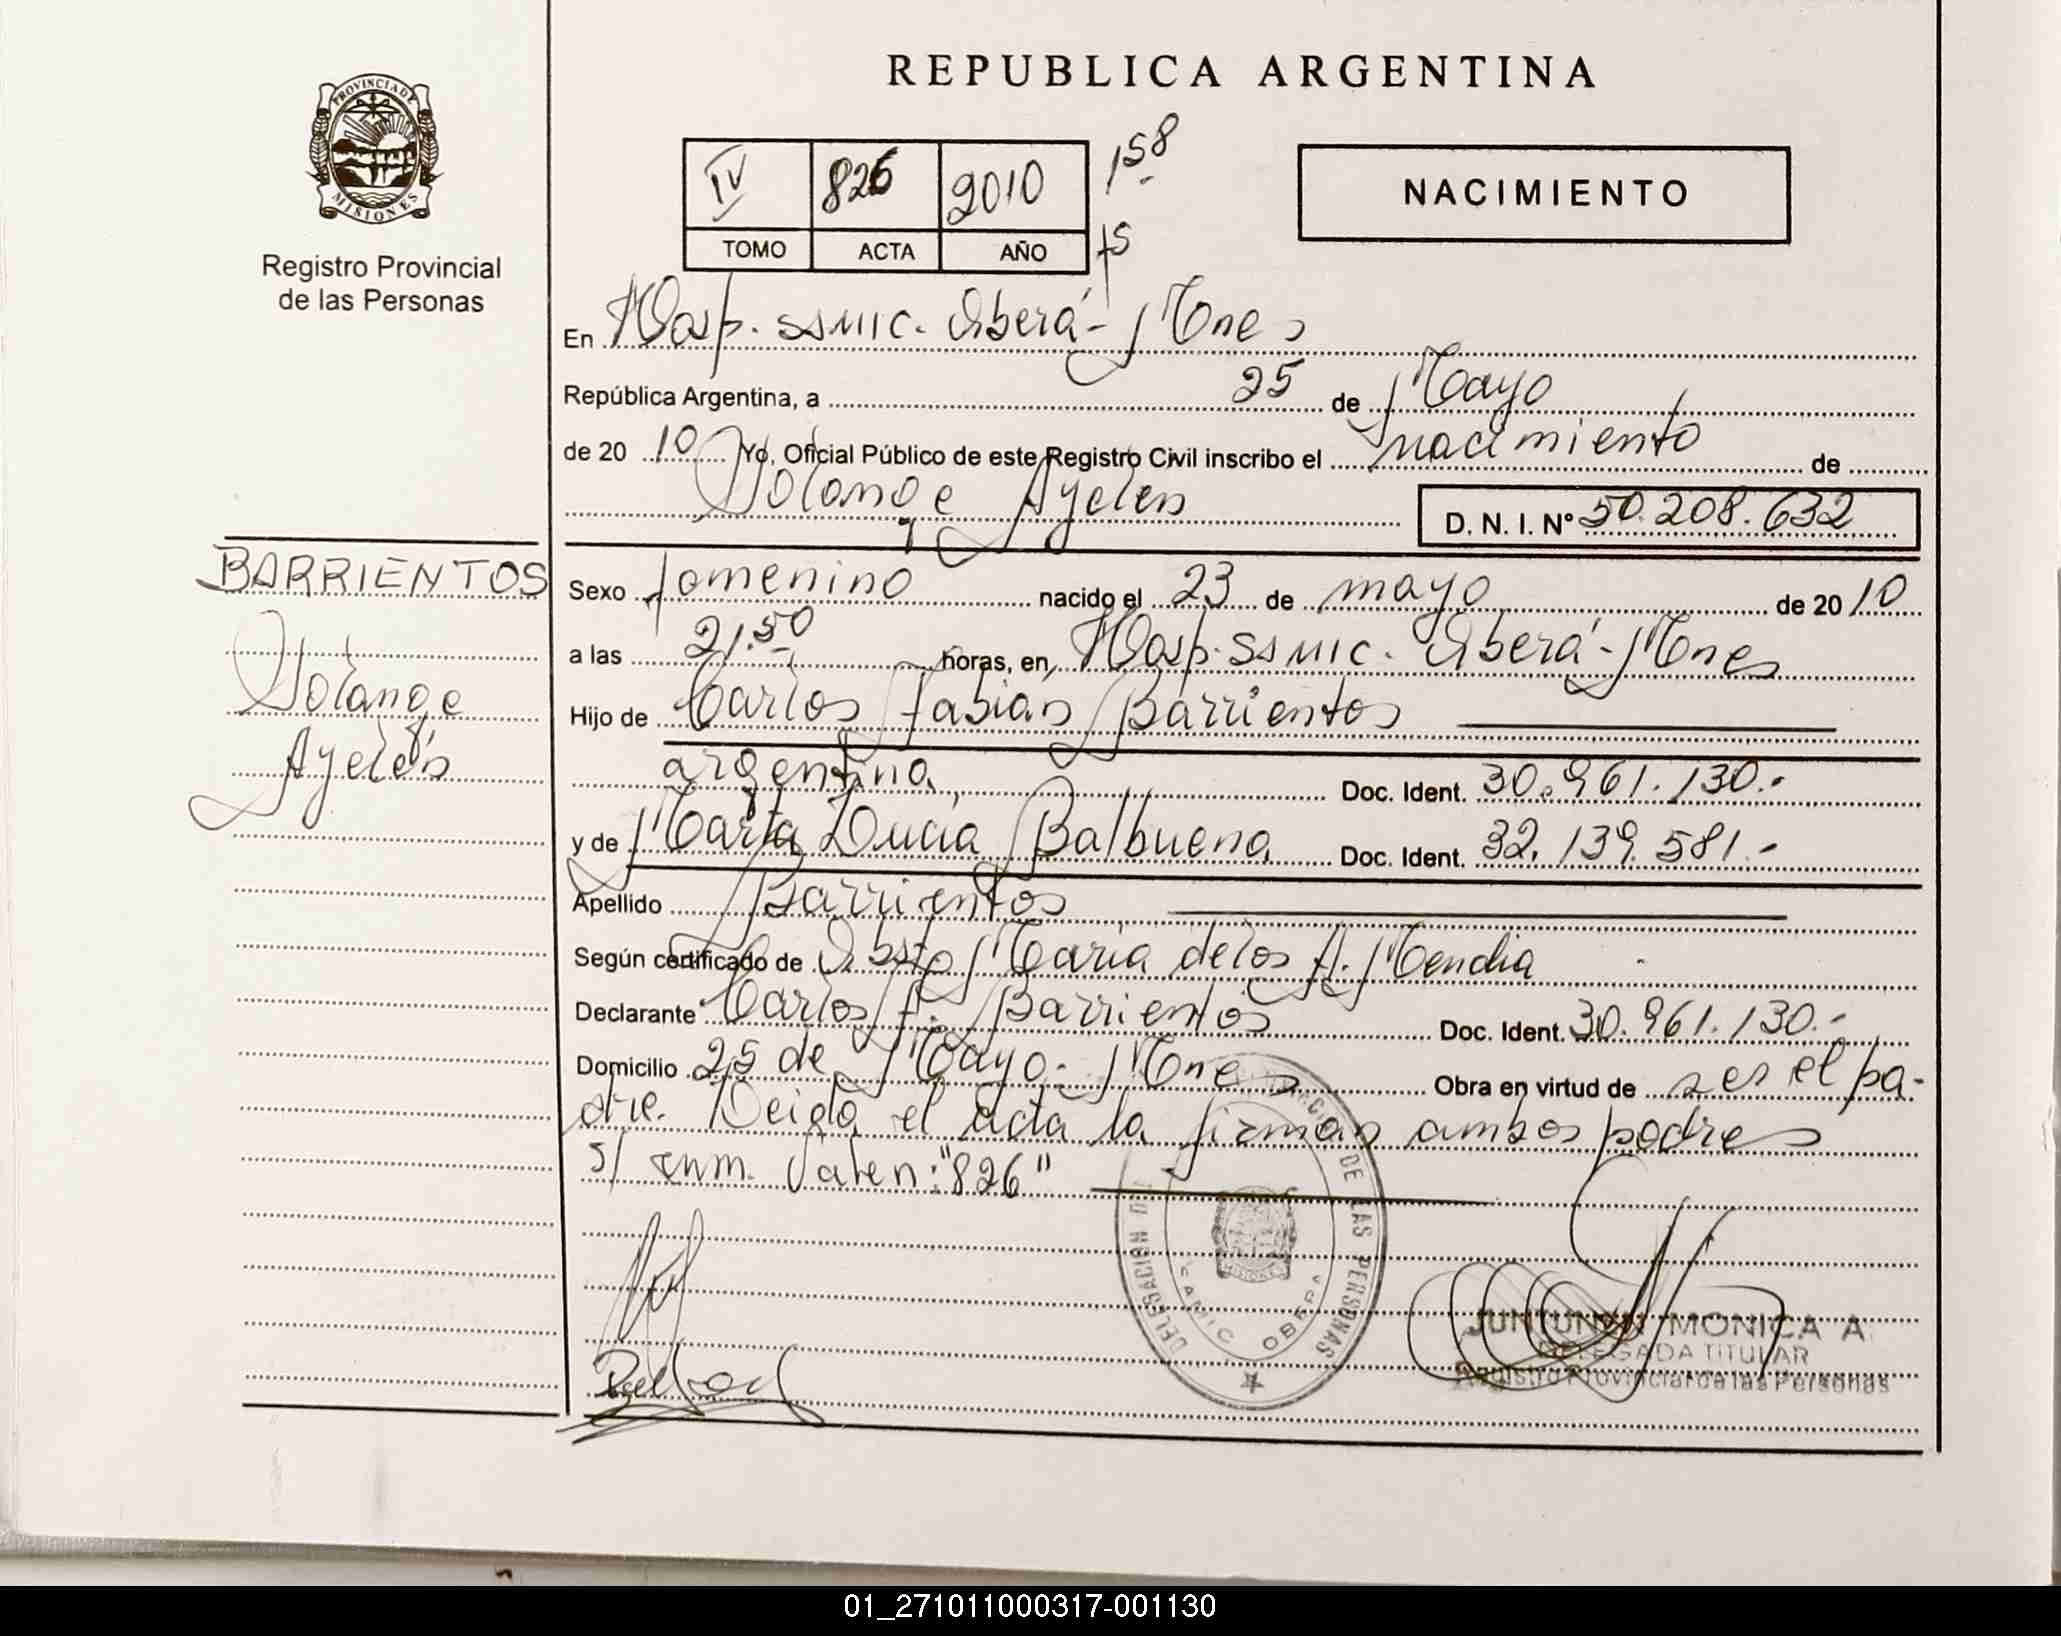 REPUBLICA ARGENTINA
PROVINCIA DE
MISIONES
Registro Provincial
de las Personas
IV 826 2010 158
TOMO ACTA AÑO fs
NACIMIENTO
En Hosp. SSMIC. Oberá - Mnes
República Argentina, a 25 de Mayo
de 20 10 Yo, Oficial Público de este Registro Civil inscribo el nacimiento de
Solange Ayelén
D. N. I. N° 50.208.632
BARRIENTOS
Solange
Ayelén
Sexo femenino nacido el 23 de mayo de 20 10
a las 21.50 horas, en Hosp. SSMIC. Oberá - Mnes
Hijo de Carlos Fabián Barrientos
argentina, Doc. Ident. 30.961.130.-
y de Marta Lucía Balbuena Doc. Ident. 32.139.581.-
Apellido Barrientos
Según certificado de Obst. María de los A. Mendia
Declarante Carlos F. Barrientos Doc. Ident. 30.961.130.-
Domicilio 25 de Mayo - Mnes Obra en virtud de ser el pa-
dre. Leída el acta la firman ambos padres
s/ enm. Valen: "826"
DELEGACION DE LAS PERSONAS
SAMIC OBERA
MISIONES
JUNTUNEN MONICA A.
DELEGADA TITULAR
Registro Provincial de las Personas
01_271011000317-001130